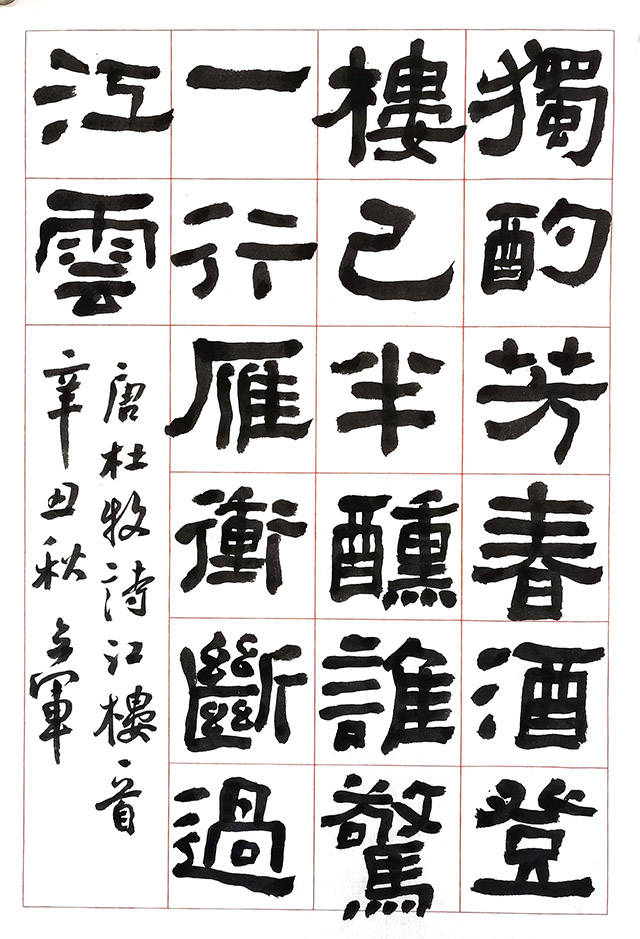 獨酌芳春酒登
樓已半醺誰驚
一行雁衝斷過
江雲
唐杜牧詩江樓一首
辛丑秋 軍